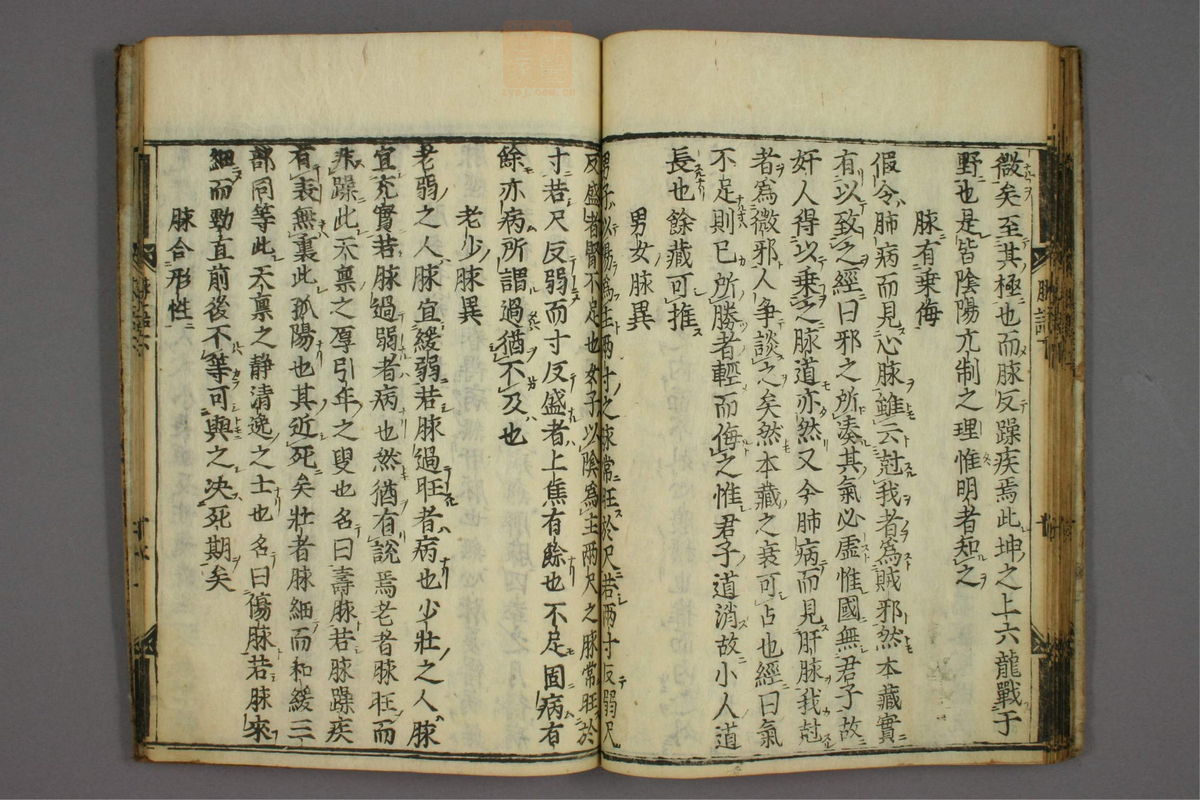 微矣至其極也而脉反躁疾焉此坤之上六龍戰于
野也是皆陰陽亢制之理惟明者知之
脉有乗侮
假令肺病而見心脉雖云尅我者為賊邪然本藏實
有以致之經曰邪之所湊其氣必虛惟國無君子故
奸人得以乗之脉道亦然又今肺病而見肝脉我尅
者為微邪人争談之矣然本藏之衰可占也經曰氣
不足則已所勝者輕而侮之惟君子道消故小人道
長也餘藏可推
男女脉異
男子以陽為主两寸之脉常旺於尺若两寸反弱尺
反盛者腎不足也女子以陰為主两尺之脉常旺於
寸若尺反弱而寸反盛者上焦有餘也不足固病有
餘亦病所謂過猶不及也
老少脉異
老弱之人脉宜緩弱若脉過旺者病也少壯之人脉
宜充實若脉過弱者病也然猶有說焉老者脉旺而
非躁此天禀之厚引年之叟也名曰壽脉若脉躁疾
有表無裏此孤陽也其近死矣壯者脉細而和緩三
部同等此天禀之静清逸之士也名曰傷脉若脉來
細而勁直前後不等可與之决死期矣
脉合形性